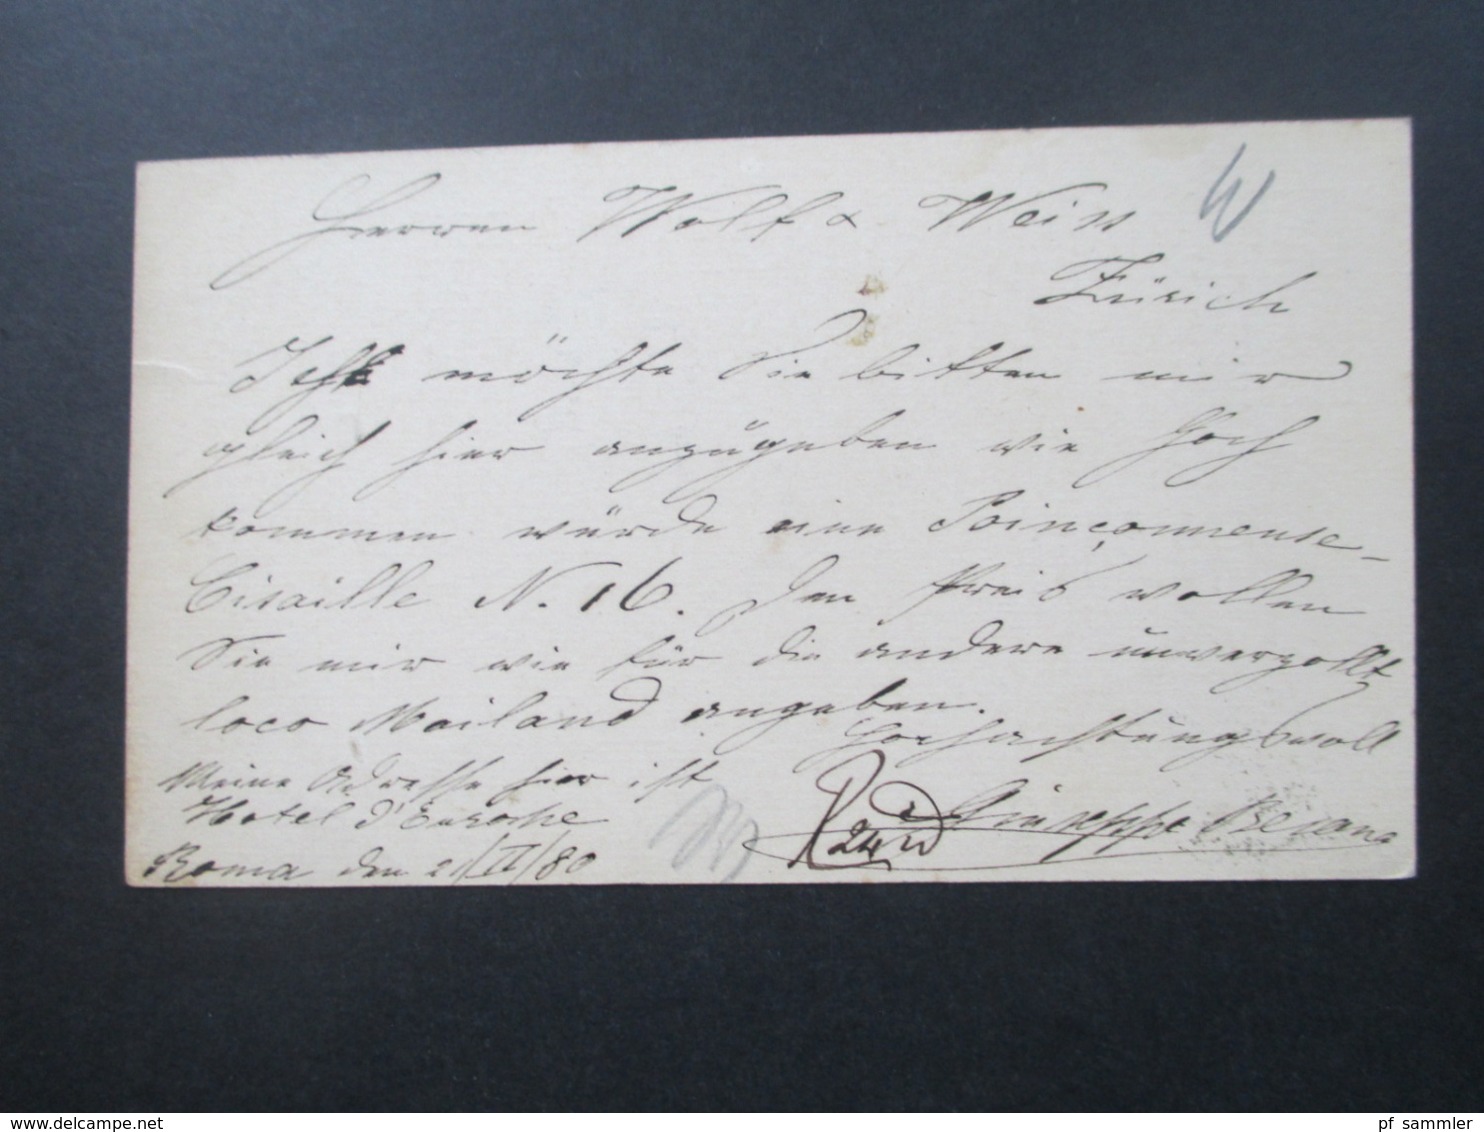 Herren Wolf & Weiss
W
Zürich
Ich möchte Sie bitten mir
gleich hier anzugeben wie hoch
kommen würde eine Poinçonneuse-
Cisaille N. 16. Den Preis wollen
Sie mir wie für die andere unverzollt
loco Mailand angeben.
Hochachtungsvoll
Meine Adresse hier ist
Hotel d'Europe
Giuseppe Besana
R 24/II
Roma den 21/II/80
www.delcampe.net
pf_sammler